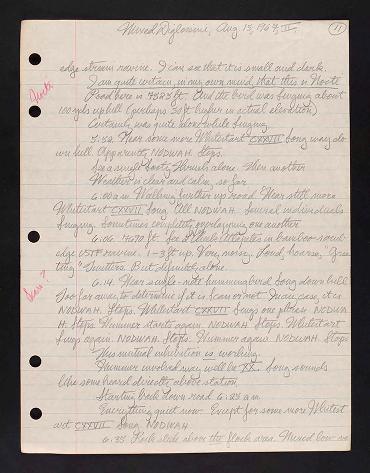 Mixed Diglossine, Aug. 15, 1964, III.
11
edge stream ravine. I can see that it is small and dark.
I am quite certain, in my own mind, that this is
Road here is 7525 ft. And the bird was singing about
100 yds uphill (perhaps 50 ft higher in actual elevation)
Certainly was quite alone while singing.
5.52. Hear some more Whitestart CXXVII Song way do
wn hill. Apparently NODWAH. Stops.
See a single Sooty Thrush alone. Then another
Weather is clear and calm, so far
6.00 am Walking further up road. Hear still more
Whitestart CXXVII Song. All NODWAH. Several individuals
singing. Sometimes completely overlapping one another
6.06. 7690 ft. See in bamboo scrub
edge ravine. 1-3 ft up. Very noisy. Loud, hoarse,
But definitely alone.
6.14. Hear single-note hummingbird Song down hill
Too far away to determine if it is Scin or not. In any case, it is
NODWAH. Stops. Whitestart CXXVII Sings one phrase. NODWA
H. Stops. Hummer starts again. NODWAH. Stops. Whitestart
sings again. NODWAH. Stops. Hummer again. NODWAH. Stops
This mutual inhibition is working.
Hummer involved may well be XX. Song sounds
like some heard directly above station
Starting back down road 6.25 am
Everything quiet now. Except for some more Whitest
art CXXVII Song. NODWAH
6.35 above the flock area. Mixed